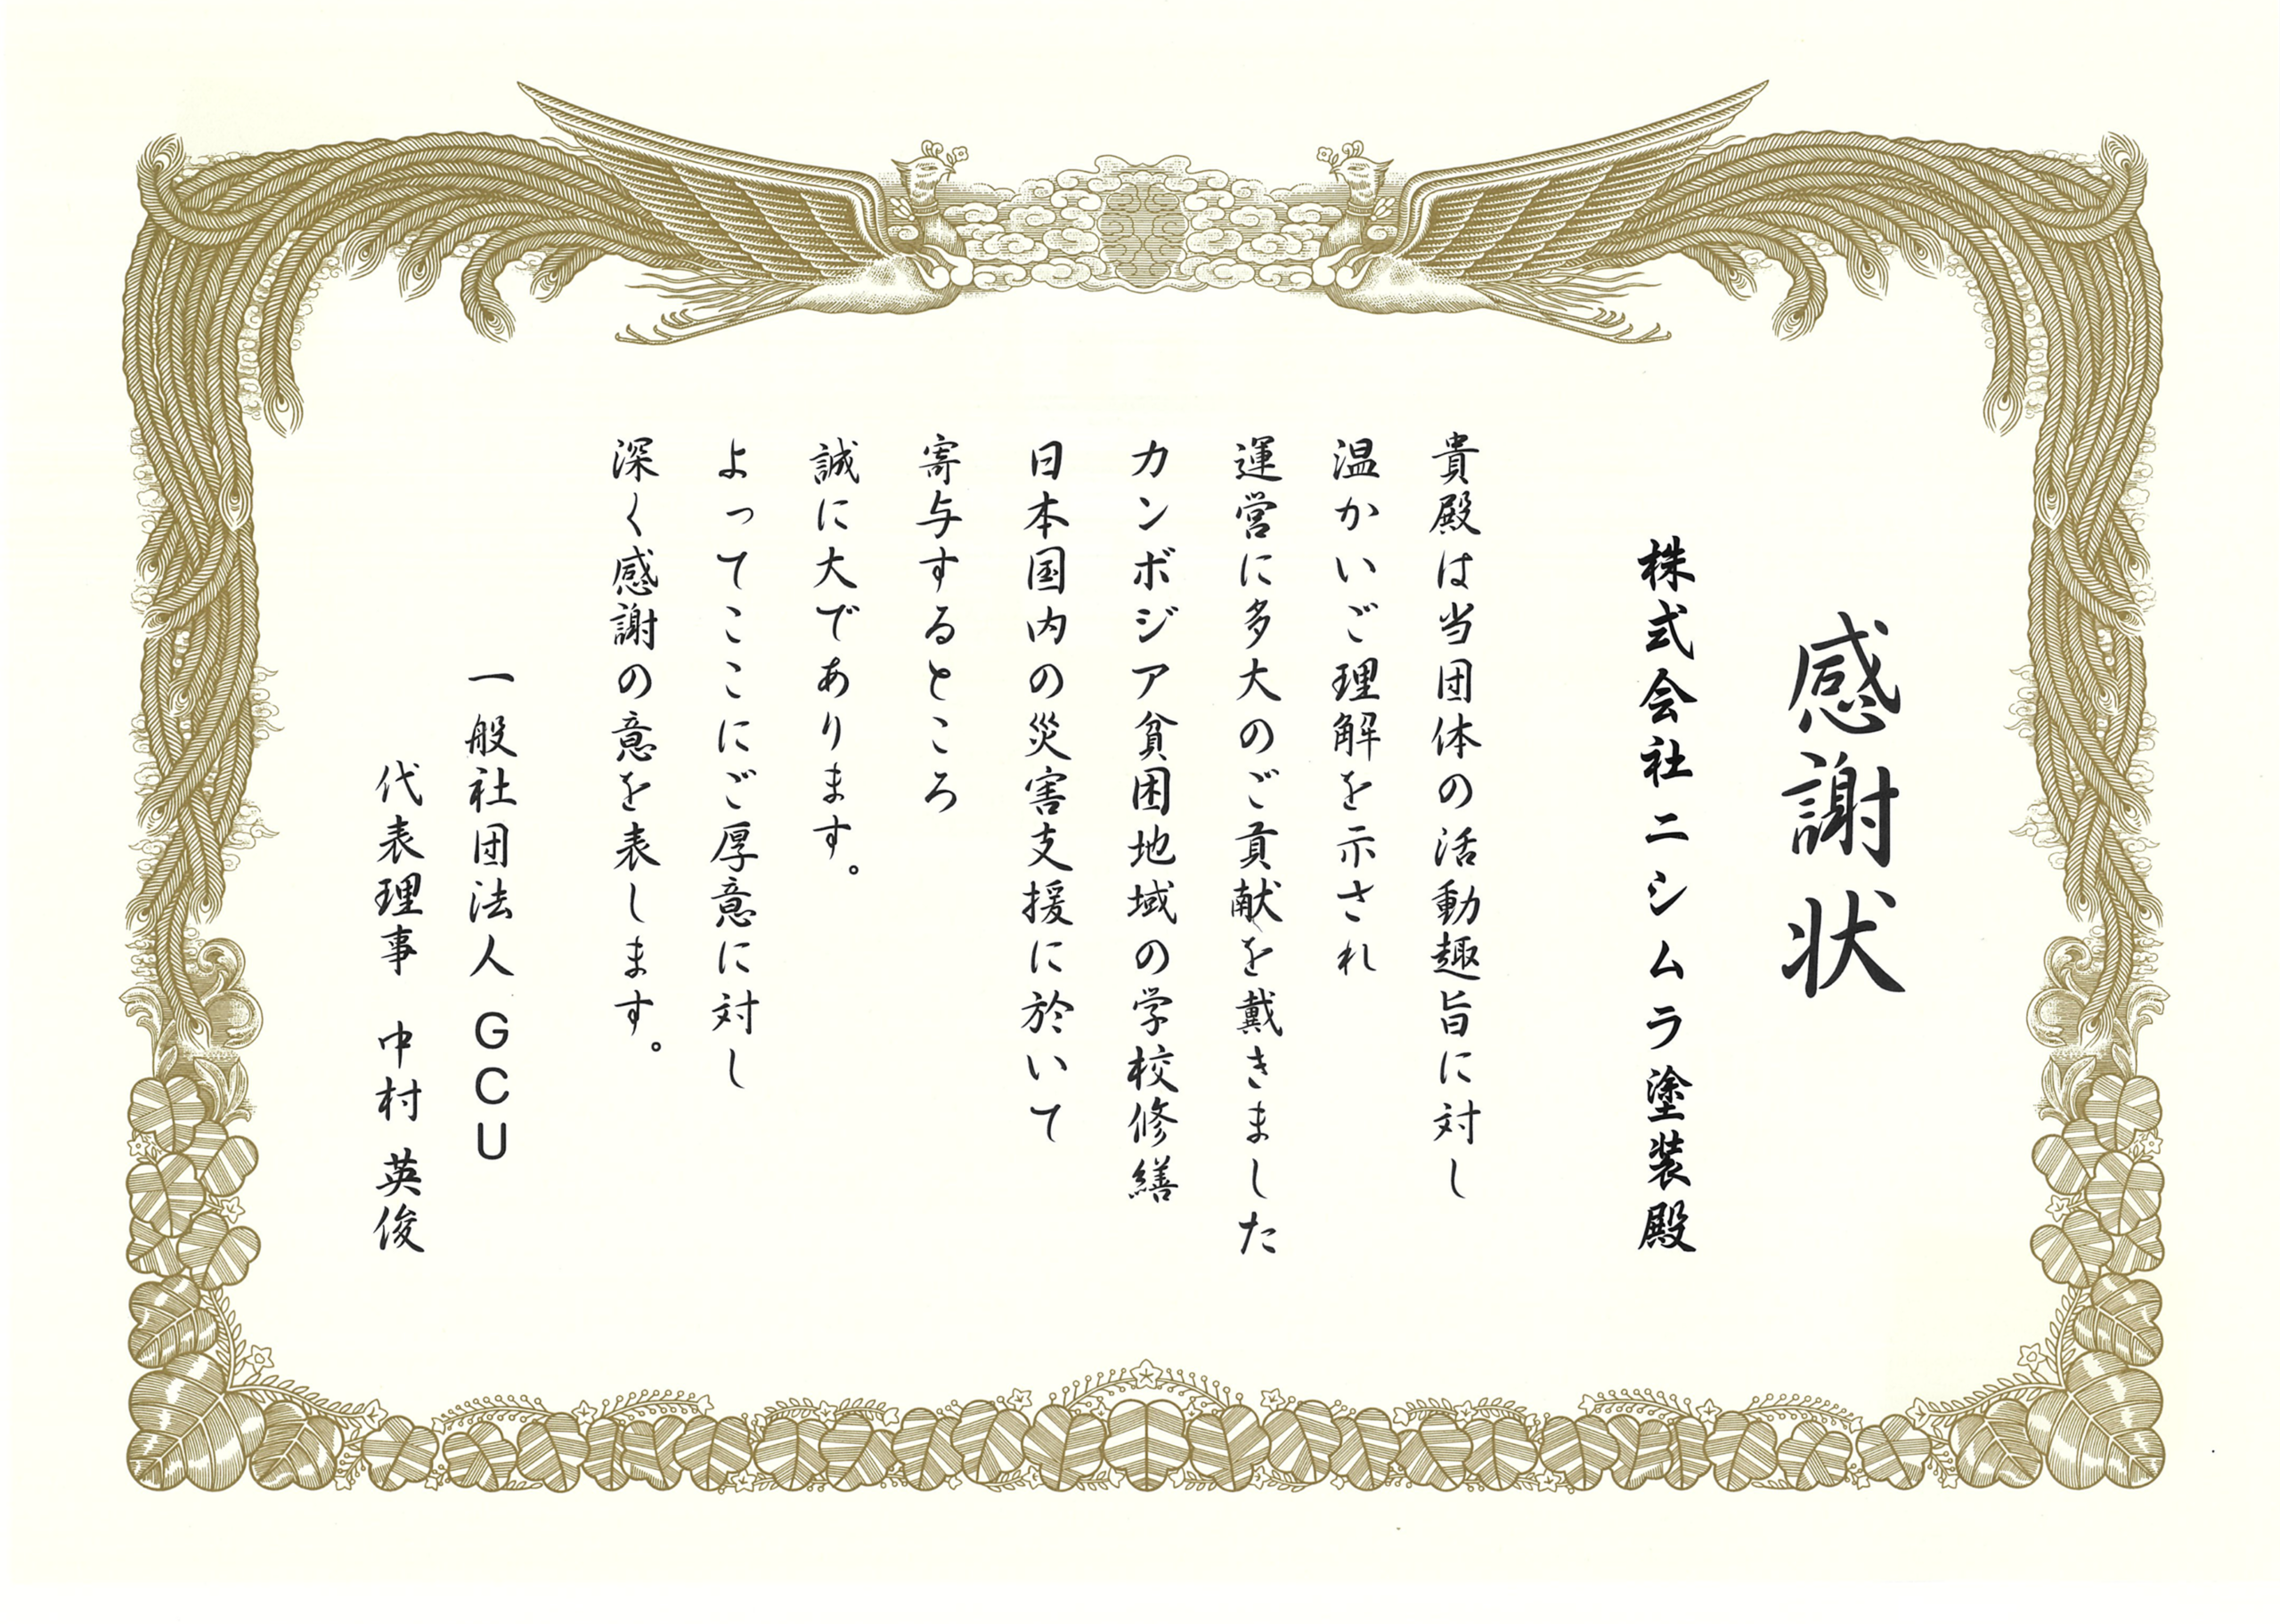 感謝状
株式会社ニシムラ塗装殿
貴殿は当団体の活動趣旨に対し
温かいご理解を示され
運営に多大のご貢献を戴きました
カンボジア貧困地域の学校修繕
日本国内の災害支援に於いて
寄与するところ
誠に大であります。
よってここにご厚意に対し
深く感謝の意を表します。
一般社団法人 GCU
代表理事 中村 英俊